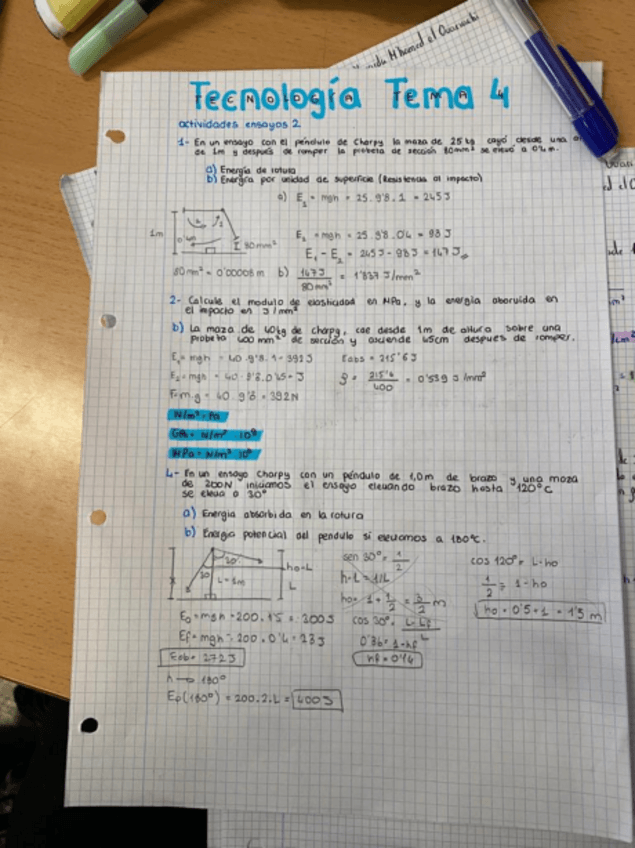 Tecnología Tema 4
actividades ensayos 2
1- En un ensayo con el péndulo de Charpy la maza de 25kg cayó desde una
de 1m y después de romper la probeta de sección 80mm² se elevó a 0'4m.
a) Energía de rotura
b) Energía por unidad de superficie (Resistencia al impacto)
a) E₁ = mgh = 25 . 9'8 . 1 = 245J
1m
0'4m
80mm²
E₂ = mgh = 25 . 9'8 . 0'4 = 98J
E₁ - E₂ = 245J - 98J = 147J
80mm² = 0'00008m b) 147J / 80mm² = 1'837 J/mm²
2- Calcula el modulo de elasticidad en MPa, y la energía absorvida en
el impacto en J/mm²
b) La maza de 40kg de charpy, cae desde 1m de altura sobre una
probeta 400mm² de sección y asciende 45cm despues de romper.
E₁ = mgh = 40 . 9'8 . 1 = 392J Eabs = 215'6J
E₂ = mgh = 40 . 9'8 . 0'45 = J
215'6 / 400 = 0'539 J/mm²
F = m.g = 40 . 9'8 = 392N
N/m² = Pa
N/m² 10⁹
MPa = N/m² 10⁶
4- En un ensayo Charpy con un péndulo de 1,0m de brazo y una maza
de 200N iniciamos el ensayo elevando brazo hasta 120°C
se eleva a 30°
a) Energia absorbida en la rotura
b) Energia potencial del pendulo si elevamos a 180°C.
30
L = 1m
ho-L
L
sen 30° = 1/2
h-L = 1/2L
ho = 1 + 1/2 = 3/2 m
cos 120° = L-ho
1/2 = 1-ho
ho = 0'5 + 1 = 1'5 m
E₀ = mgh = 200 . 1'5 = 300J
Ef = mgh = 200 . 0'14 = 28J
Eab = 272J
cos 30° = L-hf / L
0'86 = 1-hf
hf = 0'14
h → 180°
Ep(180°) = 200 . 2 . L = 400J